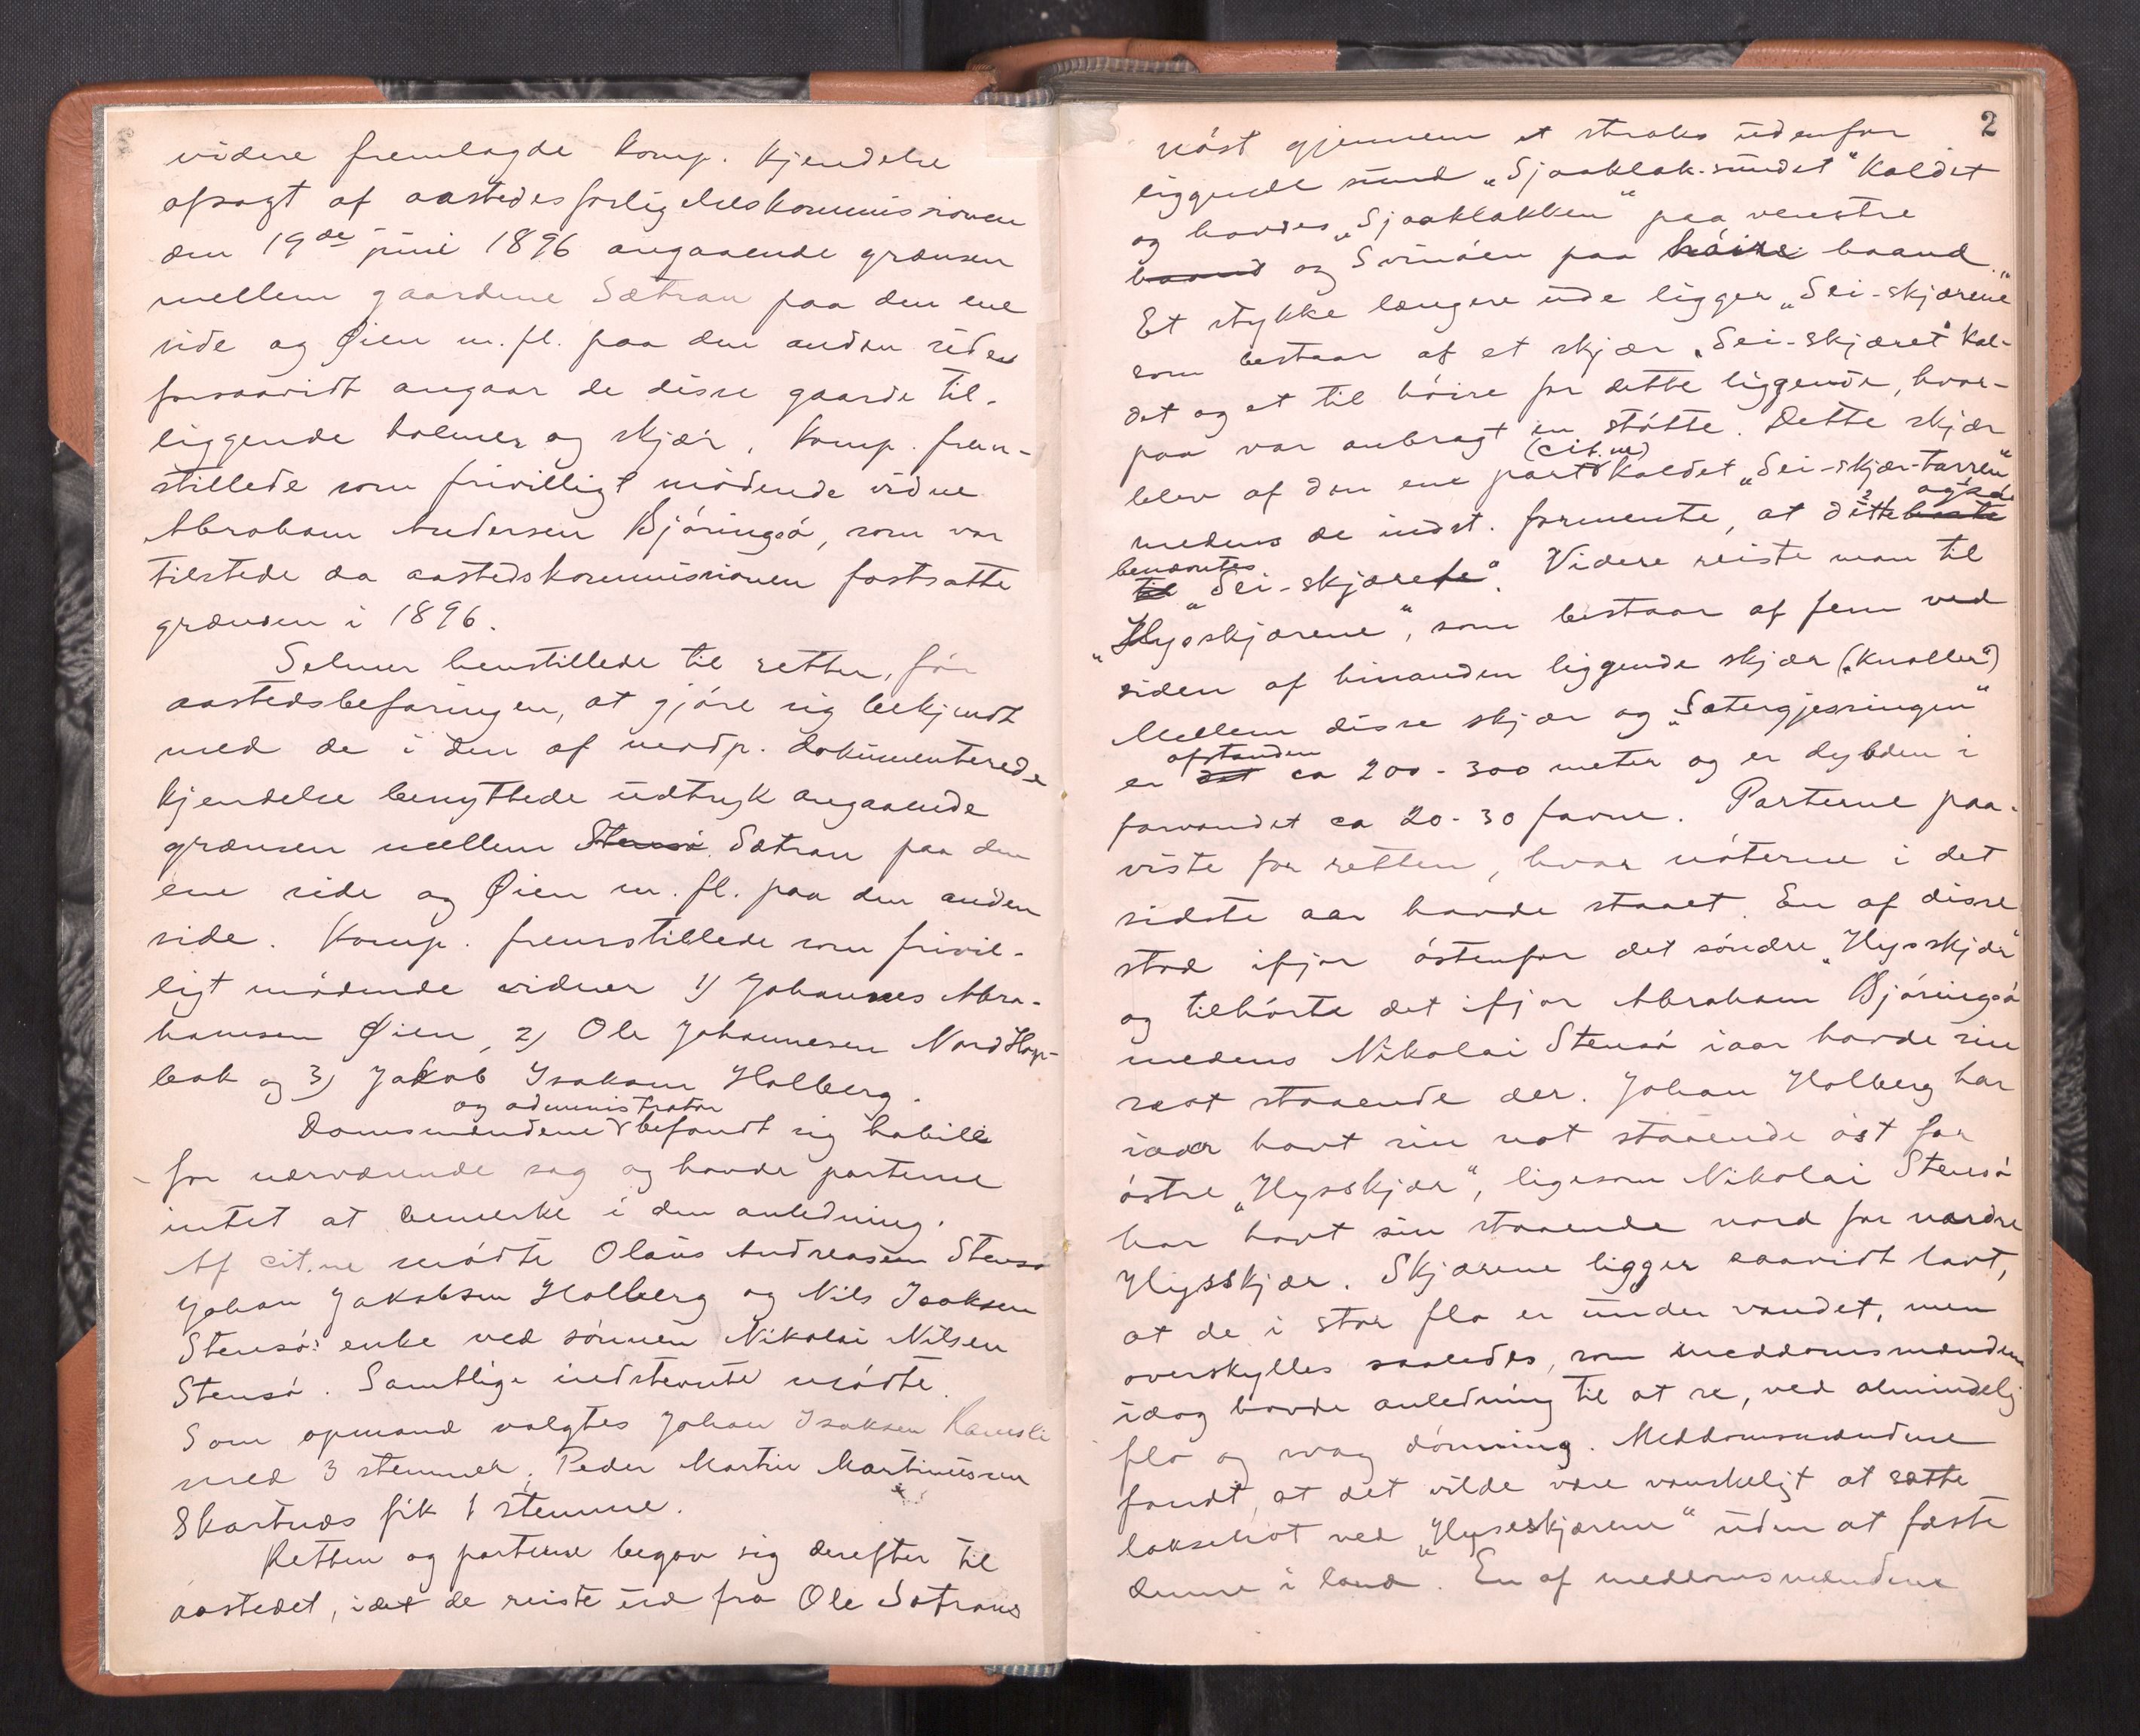 videre fremlagde komp. kjendelse
afsagt af aastedsforligelseskommissionen
den 19de juni 1896 angaaende grænsen
mellem gaardene Sætran paa den ene
side og Øien m. fl. paa den anden side
forsaavidt angaar de disse gaarde til-
liggende holmer og skjær. Komp. frem-
stillede som frivilligt mødende vidne
Abraham Andersen Bjøringsø, som var
tilstede da aastedskommissionen fastsatte
grænsen i 1896.
Selmer henstillede til retten, før
aastedsbefaringen, at gjøre sig bekjendt
med de i den af nedp. dokumenterede
kjendelse benyttede udtryk angaaende
grænsen mellem Stensø Sætran paa den
ene side og Øien m. fl. paa den anden
side. Komp. fremstillede som frivil-
ligt mødende vidner 1) Johannes Abra-
hamsen Øien, 2) Ole Johannesen Nord Hop-
bak og 3) Jakob Isaksen Holberg.
og administrator
Domsmændene befandt sig habile
for nærværende sag og havde parterne
intet at bemerke i den anledning.
Af cit.ne mødte Olaus Andreasen Stensø
Johan Jakobsen Holberg og Nils Isaksen
Stensø's enke ved sønnen Nikolai Nilsen
Stensø. Samtlige indstevnte mødte.
Som opmand valgtes Johan Isaksen Ramsli
med 3 stemmer. Peder Martin Martinussen
Skartnæs fik 1 stemme.
Retten og parterne begav sig derefter til
aastedet, idet de reiste ud fra Ole Sætrans
2
nøst gjennem et straks udenfor
liggende sund „Sjaaklak-sundet" kaldet
og havdes „Sjaaklakken" paa venstre
haand og Svinøen paa høire haand.
Et stykke længere ude ligger „Sei-skjærene"
som bestaar af et skjær „Sei-skjæret" kal-
det og et til høire for dette liggende, hvor-
paa var anbragt en støtte. Dette skjær
(cit.ne)
blev af den ene part kaldet „Sei-skjær-tarren"
ogsaa
medens de indst. formente, at dette hørte
benævntes
til „Sei-skjærene". Videre reiste man til
„Hysskjærene", som bestaar af fem ved
siden af hinanden liggende skjær („knaller")
Mellem disse skjær og „Sætergjesningen"
afstanden
er det ca 200-300 meter og er dybden i
farvandet ca 20-30 favne. Parterne paa-
viste for retten, hvor nøterne i det
sidste aar havde staaet. En af disse
stod ifjor østenfor det søndre „Hysskjær"
og tilhørte det ifjor Abraham Bjøringsø
medens Nikolai Stensø iaar havde sin
not staaende der. Johan Holberg har
iaar havt sin not staaende øst for
østre „Hysskjær", ligesom Nikolai Stensø
har havt sin staaende nord for nordre
Hysskjær. Skjærene ligger saavidt lavt,
at de i stor flo er under vandet, men
overskylles saaledes, som meddomsmændene
idag havde anledning til at se, ved almindelig
flo og svag dønning. Meddomsmændene
fandt, at det vilde være vanskeligt at sætte
laksenot ved „Hyseskjærene" uden at fæste
denne i land. En af meddomsmændene